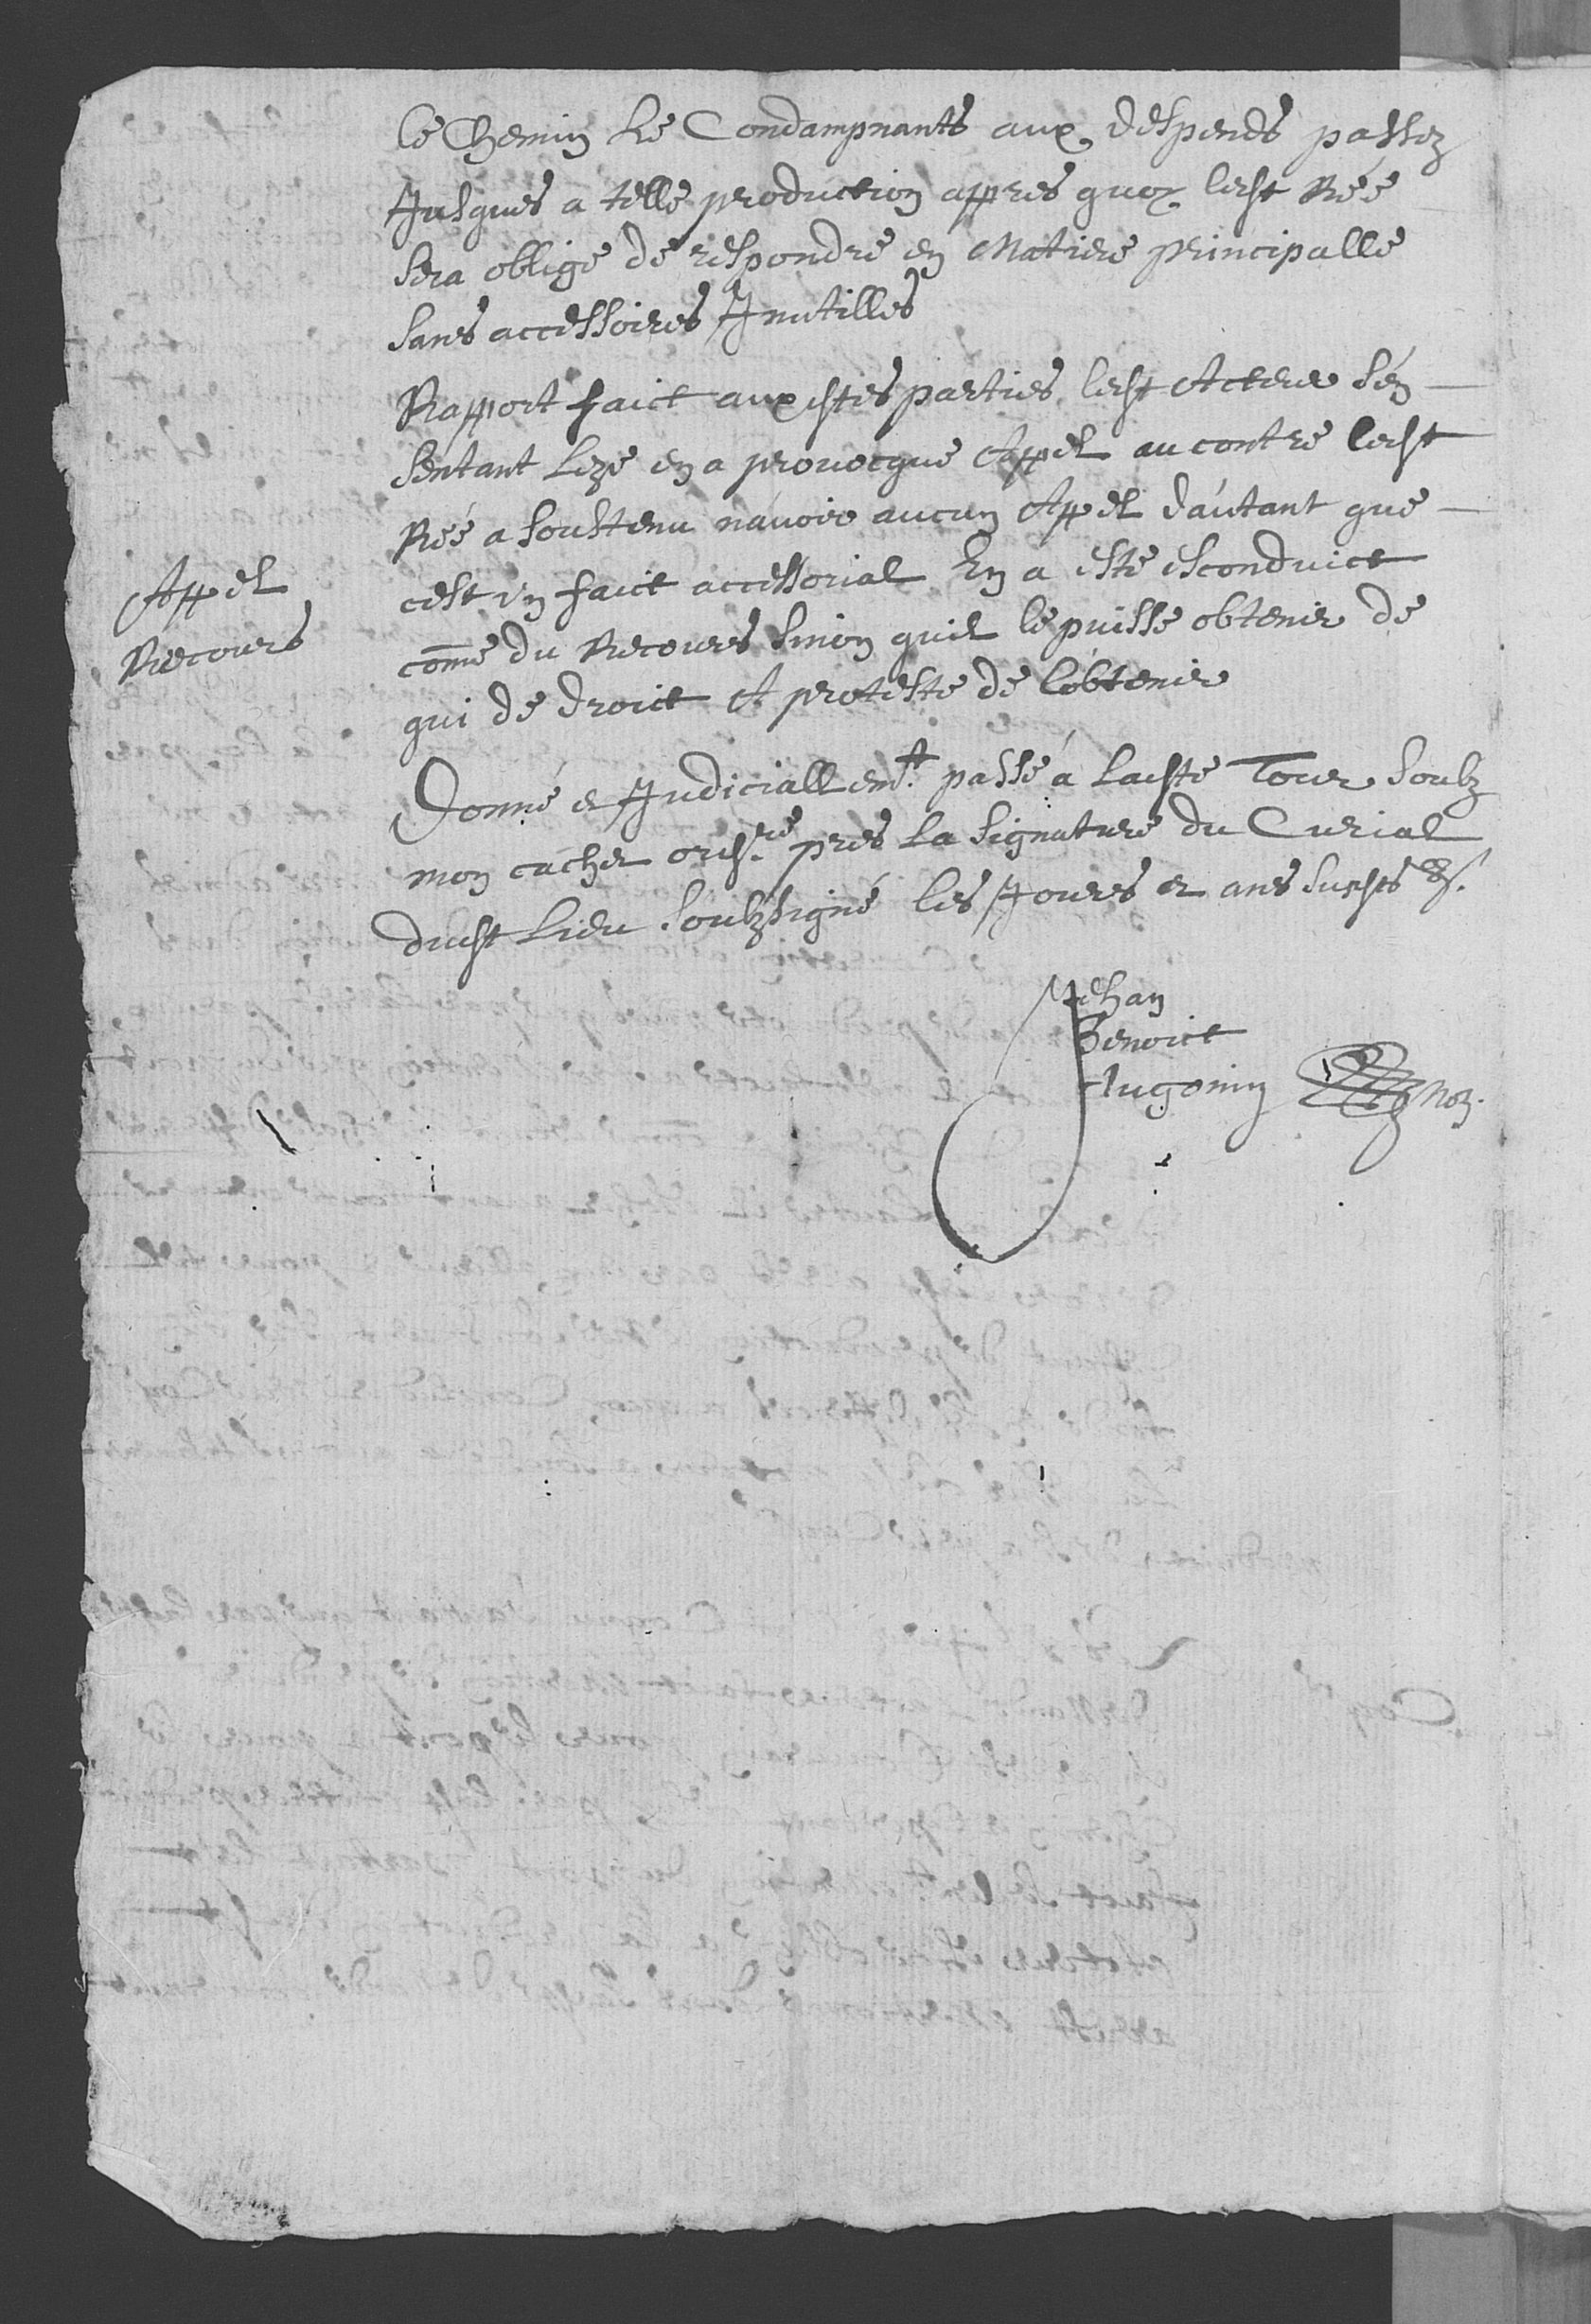 le Chemin Le Condampnants aux despends passez
Jusques a telle production appres quoy ledst Réé
sera oblige de respondre en Matiere principalle
sans accessoires Jnutilles
Rapport faict aux dstes parties, ledst Acteur s'en
sentant Leze en a prouocque Appel au contre ledst
Réé a soustenu n'auoir aucun Appel d'autant que
cest vn faict accessorial En a esté esconduict
Appel
Recours
come du Recours sinon quil le puisse obtenir de
qui de droict A proteste de l'obtenir
Donné et Judiciallemt. passé a ladste Tour soubz
mon cachet ordre. pres la signature du Curial
dudst Lieu soubzsigné les Jours et ans susdsts &.
Jehan
Benoict
Hugonin Not.